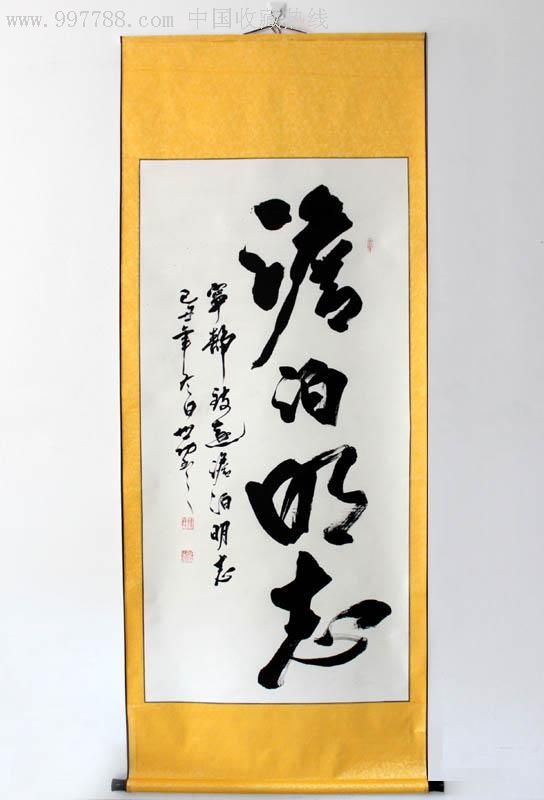 www.997788.com 中国收藏热线
澹泊明志
寧静致遠澹泊明志
己丑年